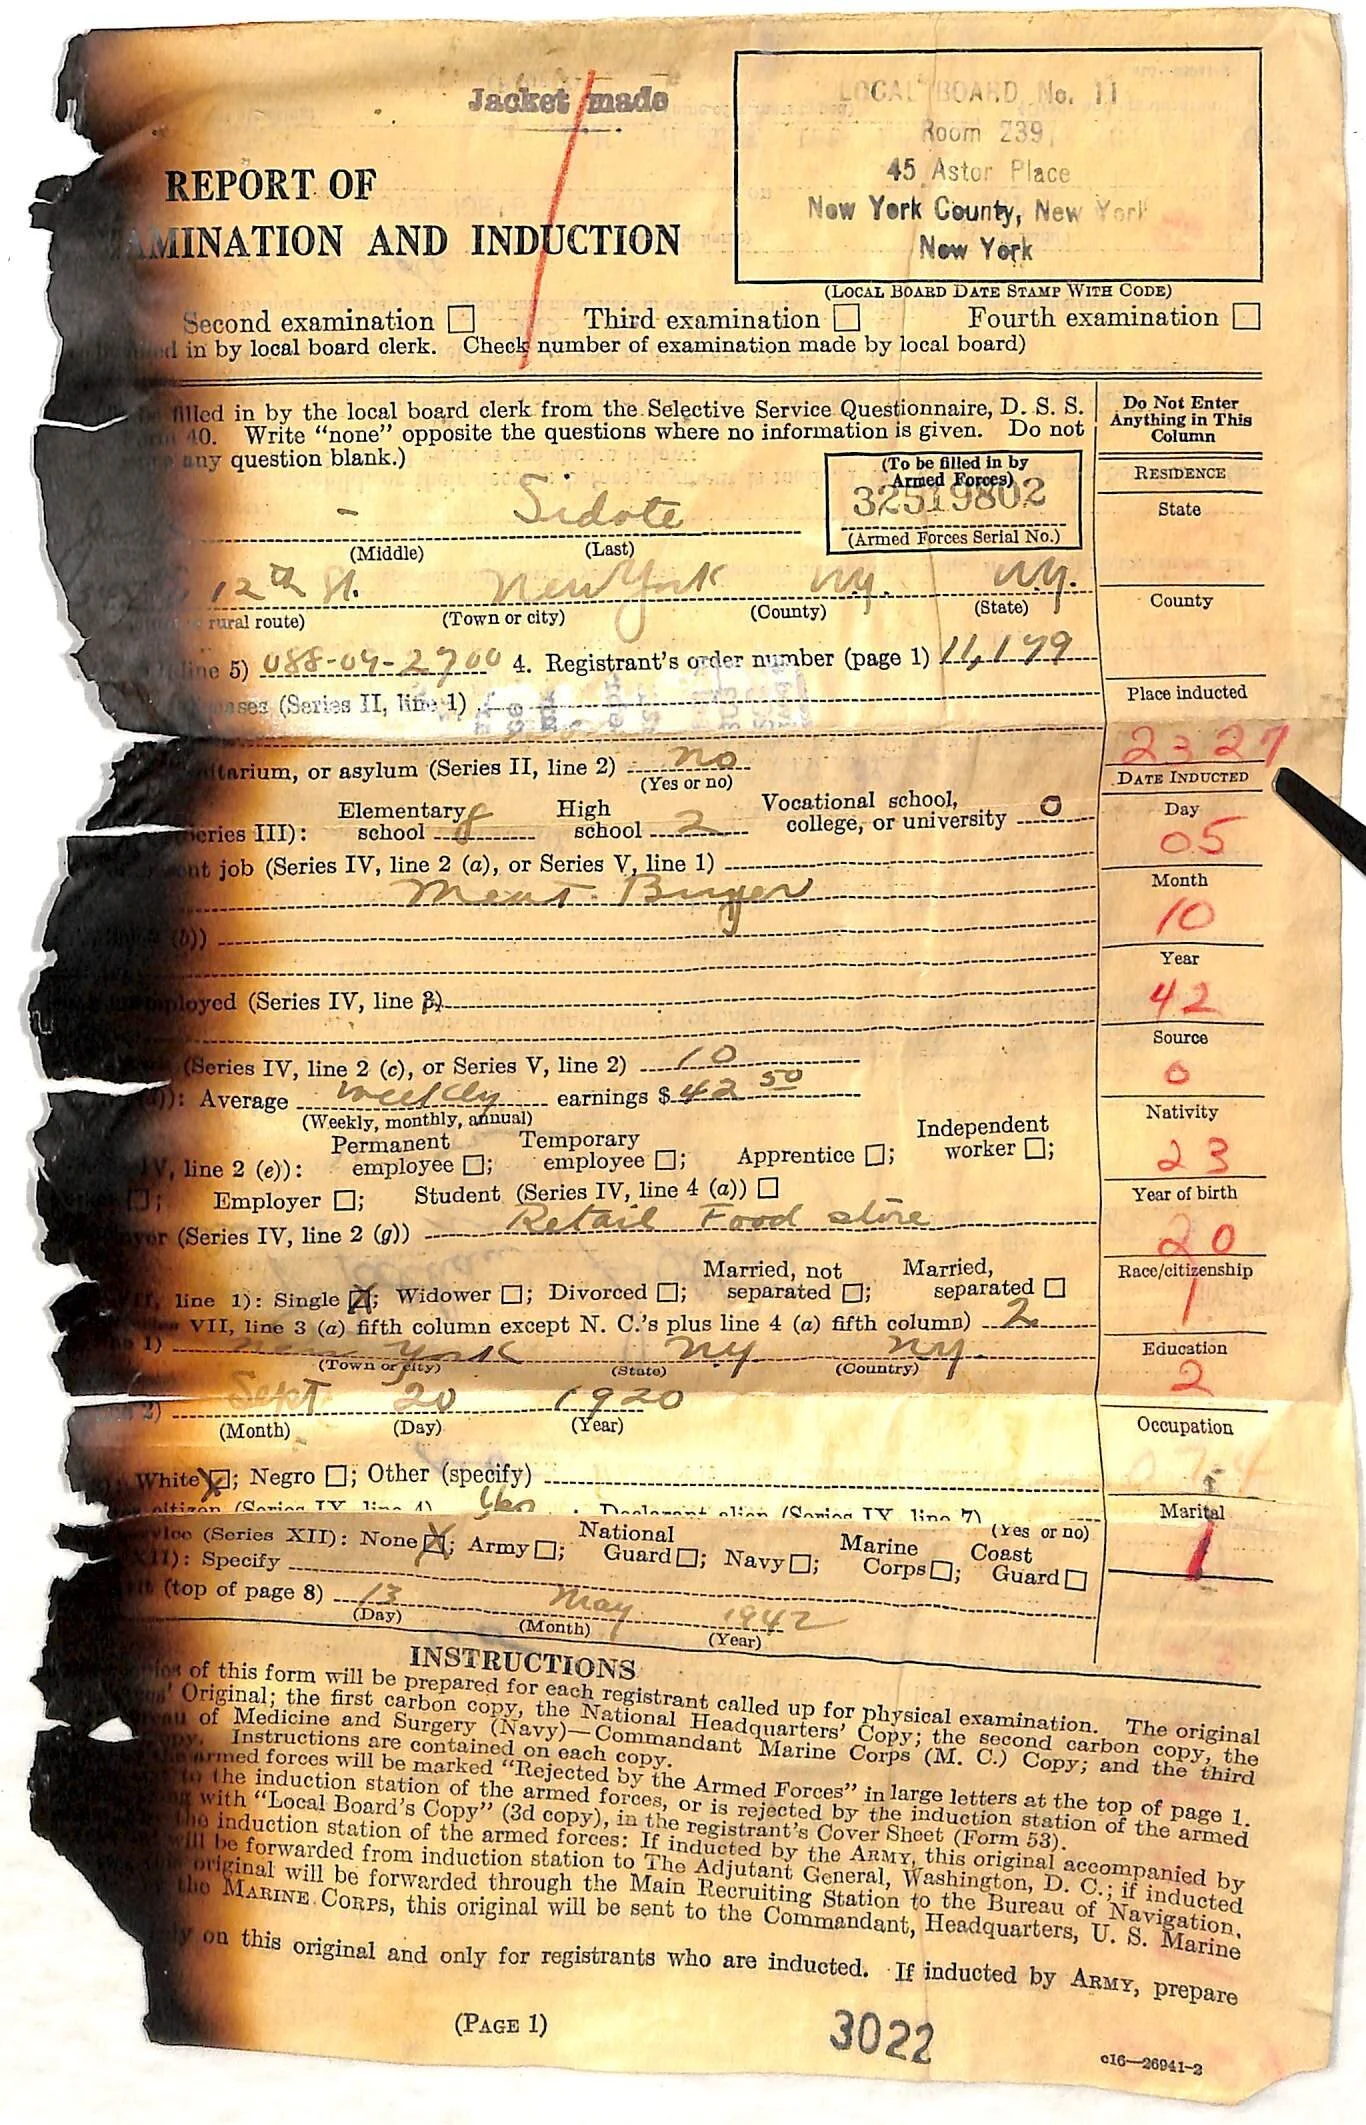 Jacket made
LOCAL BOARD No. 11
Room 239
45 Astor Place
New York County, New York
New York
REPORT OF
AMINATION AND INDUCTION
(LOCAL BOARD DATE STAMP WITH CODE)
Second examination ☐ Third examination ☐ Fourth examination ☐
in by local board clerk. Check number of examination made by local board)
filled in by the local board clerk from the Selective Service Questionnaire, D. S. S.
40. Write "none" opposite the questions where no information is given. Do not
any question blank.)
Do Not Enter
Anything in This
Column
(To be filled in by
Armed Forces)
32519802
(Armed Forces Serial No.)
RESIDENCE
State
- Sidote
(Middle) (Last)
12th St. New York Ny. Ny.
rural route) (Town or city) (County) (State)
County
line 5) 088-09-2700 4. Registrant's order number (page 1) 11,179
(Series II, line 1)
Place inducted
2327
itarium, or asylum (Series II, line 2) no
(Yes or no)
DATE INDUCTED
Day
05
eries III): Elementary school 8 High school 2 Vocational school, college, or university 0
job (Series IV, line 2 (a), or Series V, line 1)
Meat Buyer
Month
10
(b))
Year
42
ployed (Series IV, line 3)
Source
0
(Series IV, line 2 (c), or Series V, line 2) 10
Average weekly earnings $ 42 50
(Weekly, monthly, annual)
Nativity
23
line 2 (e)): Permanent employee ☐; Temporary employee ☐; Apprentice ☐; Independent worker ☐;
☐; Employer ☐; Student (Series IV, line 4 (a)) ☐
Year of birth
20
(Series IV, line 2 (g)) Retail Food store
Race/citizenship
1
line 1): Single ☒; Widower ☐; Divorced ☐; Married, not separated ☐; Married, separated ☐
VII, line 3 (a) fifth column except N. C.'s plus line 4 (a) fifth column) 2
Education
2
1) New York Ny. Ny.
(Town or city) (State) (Country)
2) Sept 20 1920
(Month) (Day) (Year)
Occupation
White ☒; Negro ☐; Other (specify)
citizen (Series IX, line 4) Yes ; Declarant alien (Series IX, line 7)
(Yes or no)
Marital
1
(Series XII): None ☒; Army ☐; National Guard ☐; Navy ☐; Marine Corps ☐; Coast Guard ☐
XII): Specify
(top of page 8) 13 May 1942
(Day) (Month) (Year)
INSTRUCTIONS
of this form will be prepared for each registrant called up for physical examination. The original
Original; the first carbon copy, the National Headquarters' Copy; the second carbon copy, the
of Medicine and Surgery (Navy)—Commandant Marine Corps (M. C.) Copy; and the third
Instructions are contained on each copy.
armed forces will be marked "Rejected by the Armed Forces" in large letters at the top of page 1.
to the induction station of the armed forces, or is rejected by the induction station of the armed
with "Local Board's Copy" (3d copy), in the registrant's Cover Sheet (Form 53).
induction station of the armed forces: If inducted by the ARMY, this original accompanied by
be forwarded from induction station to The Adjutant General, Washington, D. C.; if inducted
original will be forwarded through the Main Recruiting Station to the Bureau of Navigation.
the MARINE CORPS, this original will be sent to the Commandant, Headquarters, U. S. Marine
on this original and only for registrants who are inducted. If inducted by ARMY, prepare
(PAGE 1)
3022
c16—26941-2